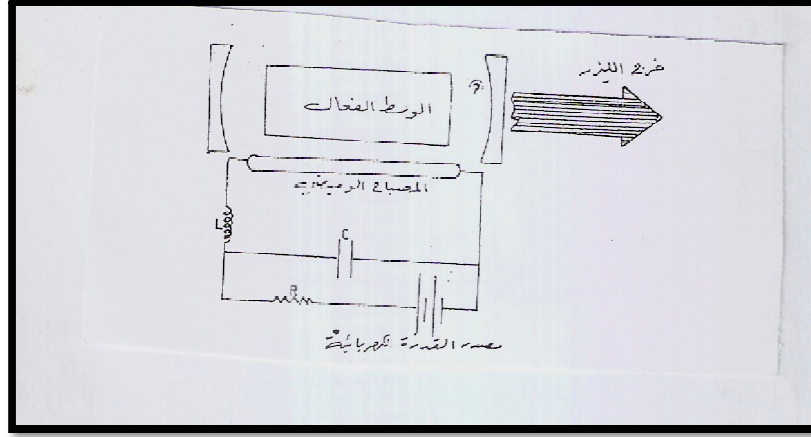 خرج الليزر
الوسط الفعال
المصباح الوميضي
L
C
R
مصدر القدرة الكهربائية